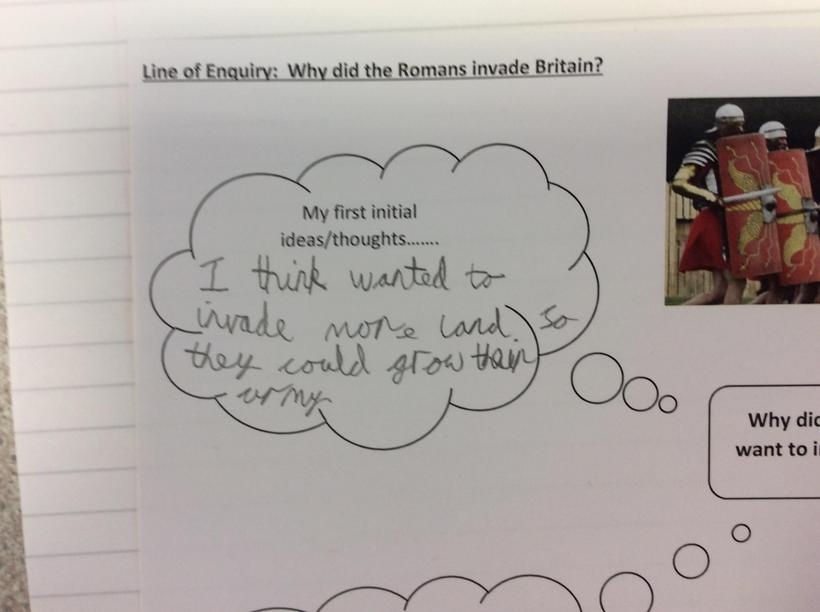 Line of Enquiry: Why did the Romans invade Britain?
My first initial
ideas/thoughts.......
I think wanted to
invade more land. So
they could grow their
army
Why did
want to i